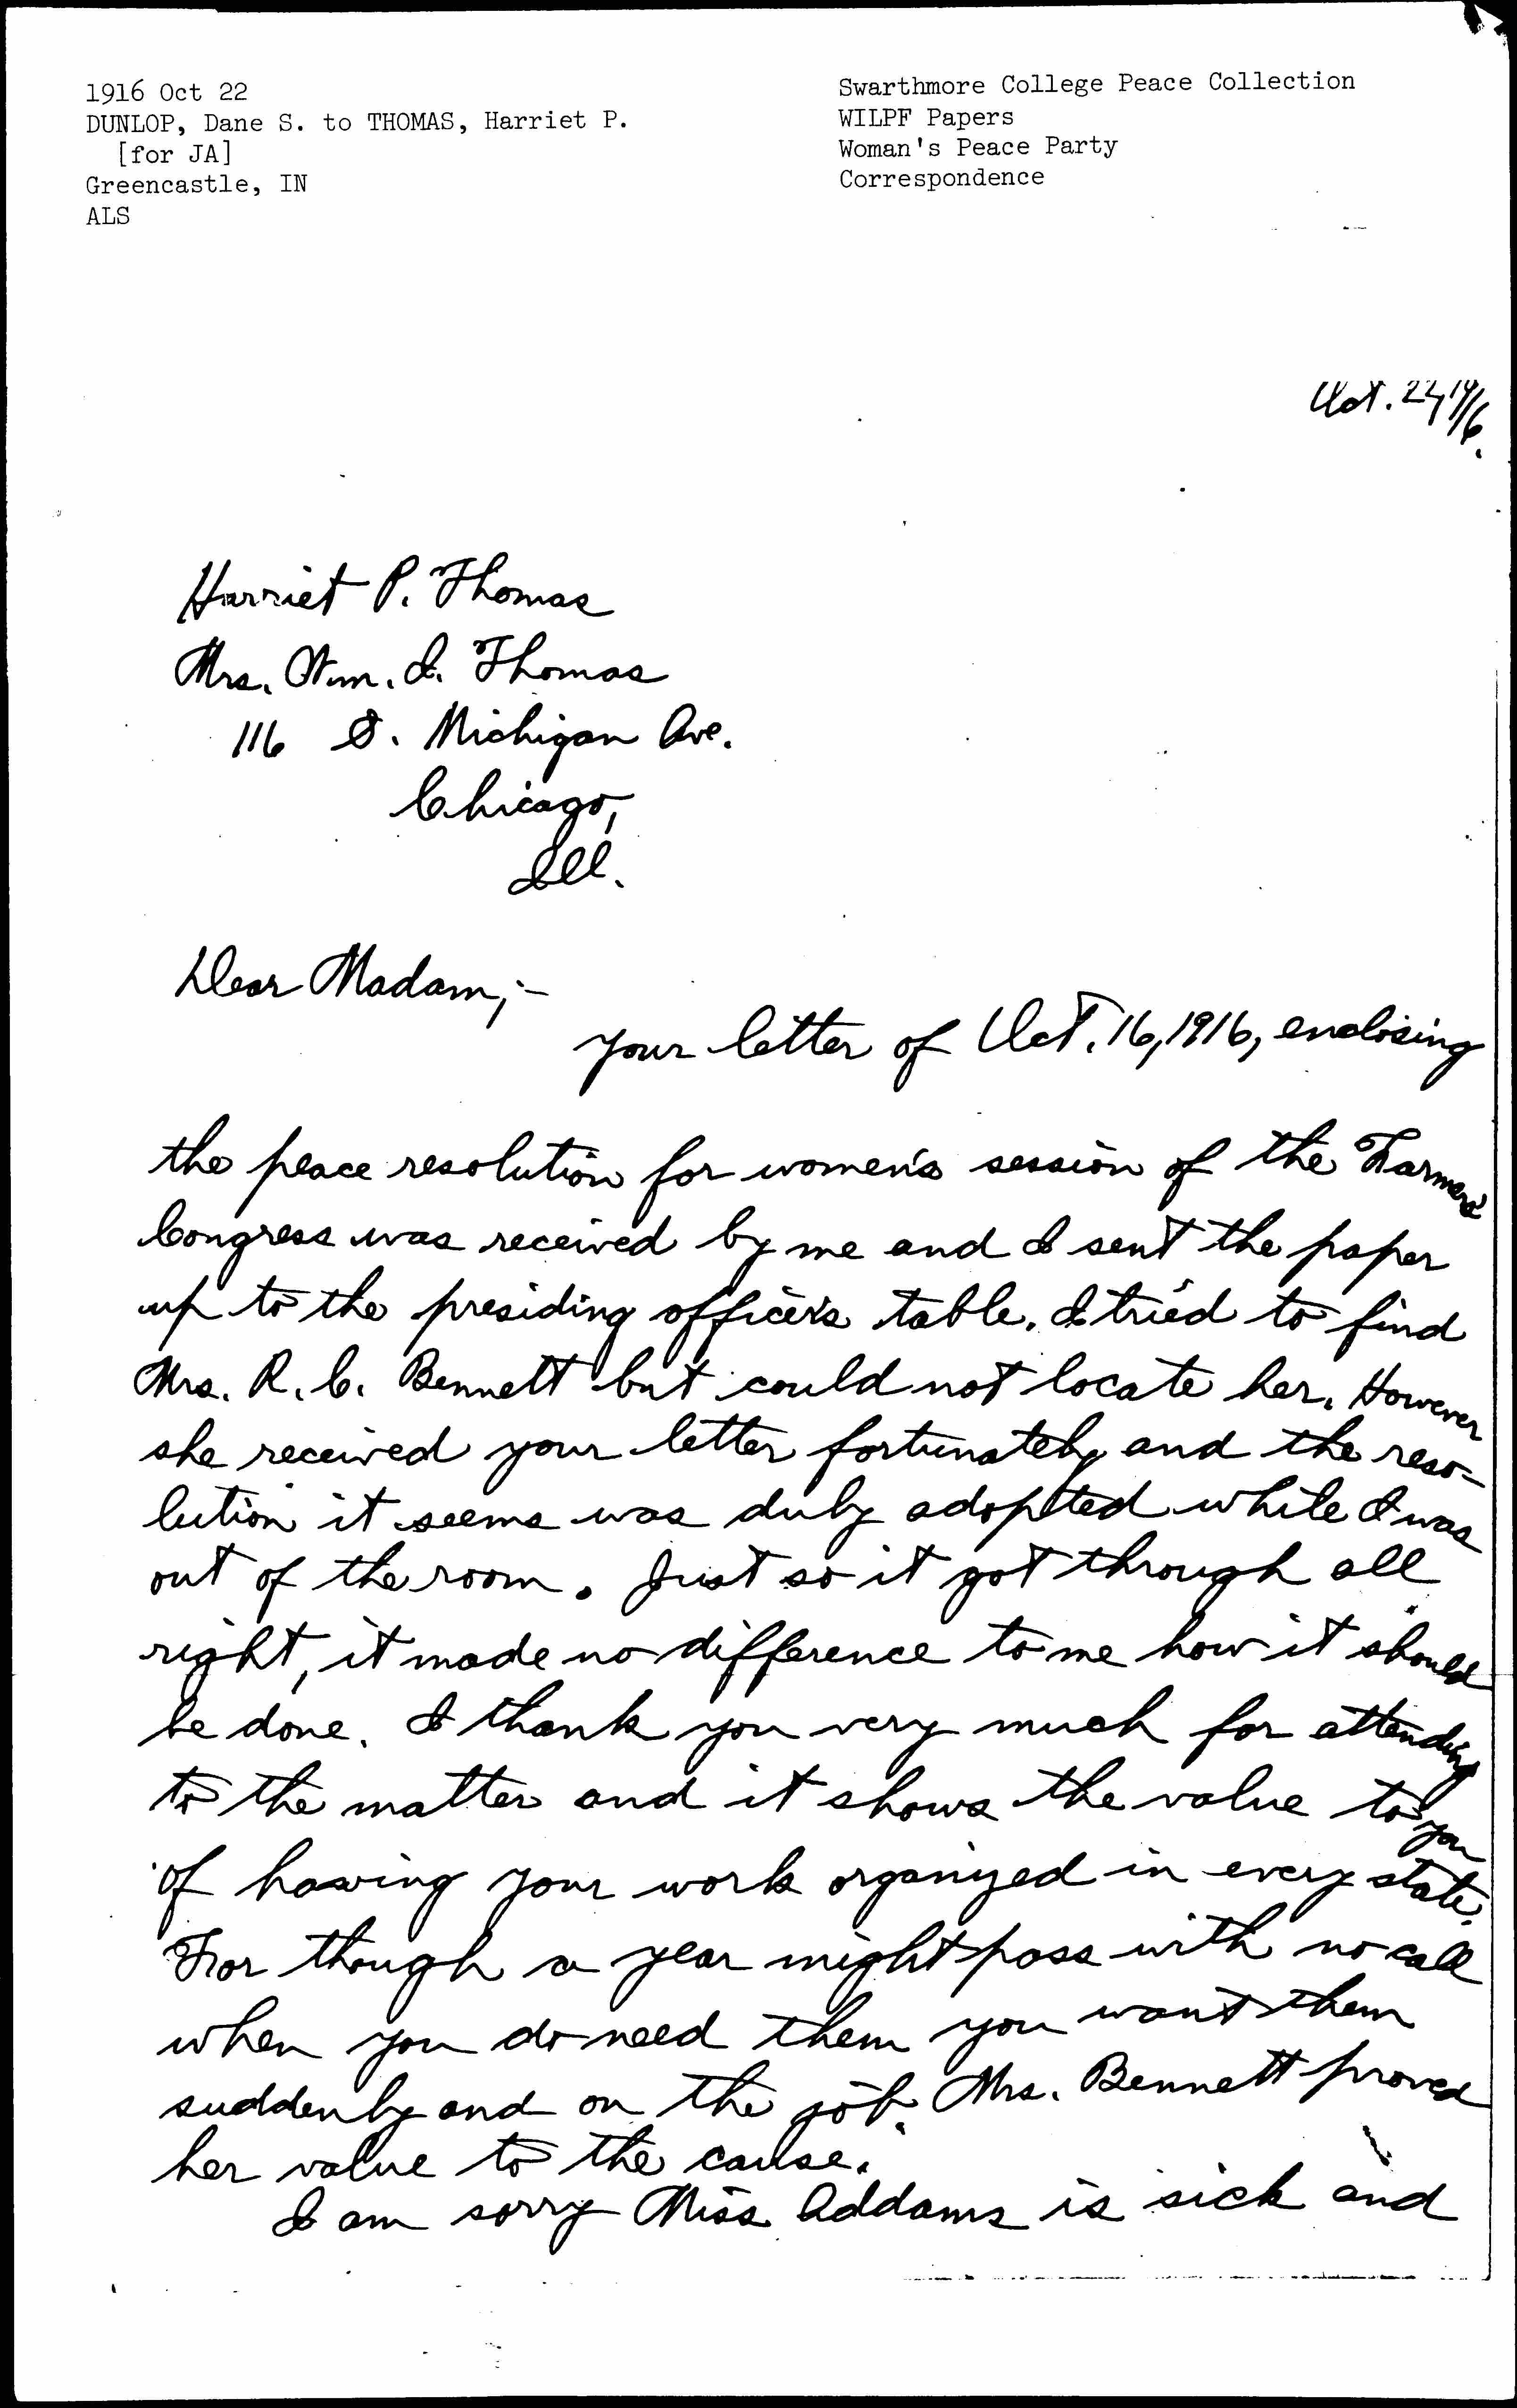 1916 Oct 22
DUNLOP, Dane S. to THOMAS, Harriet P.
[for JA]
Greencastle, IN
ALS
Swarthmore College Peace Collection
WILPF Papers
Woman's Peace Party
Correspondence
Oct. 22, 1916.
Harriet P. Thomas
Mrs. Wm. I. Thomas
116 S. Michigan Ave.
Chicago,
Ill.
Dear Madam;-
your letter of Oct. 16, 1916, enclosing
the peace resolution for women's session of the Farmers'
Congress was received by me and I sent the paper
up to the presiding officer's table. I tried to find
Mrs. R. C. Bennett but could not locate her. However
she received your letter fortunately and the reso-
lution it seems was duly adopted while I was
out of the room. Just so it got through all
right, it made no difference to me how it should
be done. I thank you very much for attending
to the matter and it shows the value to you
of having your work organized in every state.
For though a year might pass with no call
when you do need them you want them
suddenly and on the job. Mrs. Bennett proved
her value to the cause.
I am sorry Miss Addams is sick and